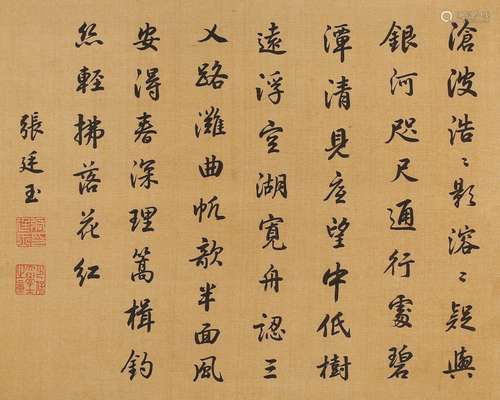 滄波浩〻影溶〻疑與
銀河咫尺通行處碧
潭清見底望中低樹
遠浮空湖寬舟認三
乂路灘曲帆歌半面風
安得春深理篙楫釣
絲輕拂落花紅
張廷玉